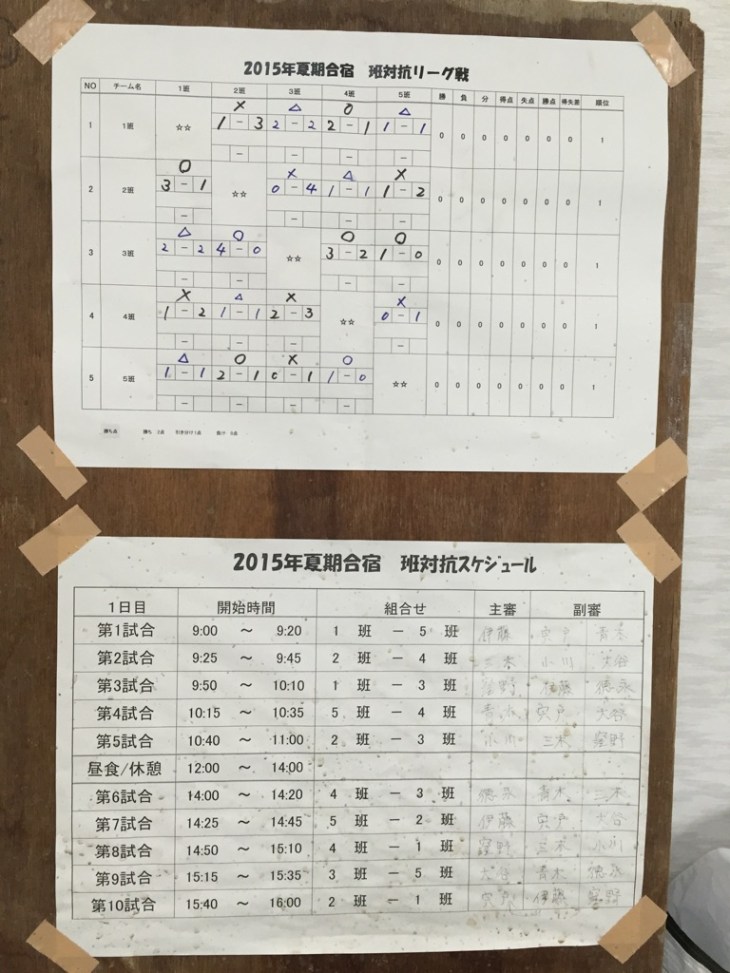 2015年夏期合宿 班対抗リーグ戦
NO チーム名 1班 2班 3班 4班 5班 勝 負 分 得点 失点 勝点 得失差 順位
× △ ○ △
1 1班 ☆☆ 1 - 3 2 - 2 2 - 1 1 - 1 0 0 0 0 0 0 0 1
- - - -
○ × △ ×
2 2班 3 - 1 ☆☆ 0 - 4 1 - 1 1 - 2 0 0 0 0 0 0 0 1
- - - -
△ ○ ○ ○
3 3班 2 - 2 4 - 0 ☆☆ 3 - 2 1 - 0 0 0 0 0 0 0 0 1
- - - -
× △ × ×
4 4班 1 - 2 1 - 1 2 - 3 ☆☆ 0 - 1 0 0 0 0 0 0 0 1
- - - -
△ ○ × ○
5 5班 1 - 1 2 - 1 0 - 1 1 - 0 ☆☆ 0 0 0 0 0 0 0 1
- - - -
勝ち点 勝ち 3点 引き分け1点 負け 0点
2015年夏期合宿 班対抗スケジュール
1日目 開始時間 組合せ 主審 副審
第1試合 9:00 ～ 9:20 1 班 － 5 班 伊藤 宍戸 青木
第2試合 9:25 ～ 9:45 2 班 － 4 班 三木 小川 大谷
第3試合 9:50 ～ 10:10 1 班 － 3 班 窪野 伊藤 徳永
第4試合 10:15 ～ 10:35 5 班 － 4 班 青木 宍戸 大谷
第5試合 10:40 ～ 11:00 2 班 － 3 班 小川 三木 窪野
昼食/休憩 12:00 ～ 14:00
第6試合 14:00 ～ 14:20 4 班 － 3 班 徳永 青木 三木
第7試合 14:25 ～ 14:45 5 班 － 2 班 伊藤 宍戸 大谷
第8試合 14:50 ～ 15:10 4 班 － 1 班 窪野 三木 小川
第9試合 15:15 ～ 15:35 3 班 － 5 班 大谷 青木 徳永
第10試合 15:40 ～ 16:00 2 班 － 1 班 宍戸 伊藤 窪野